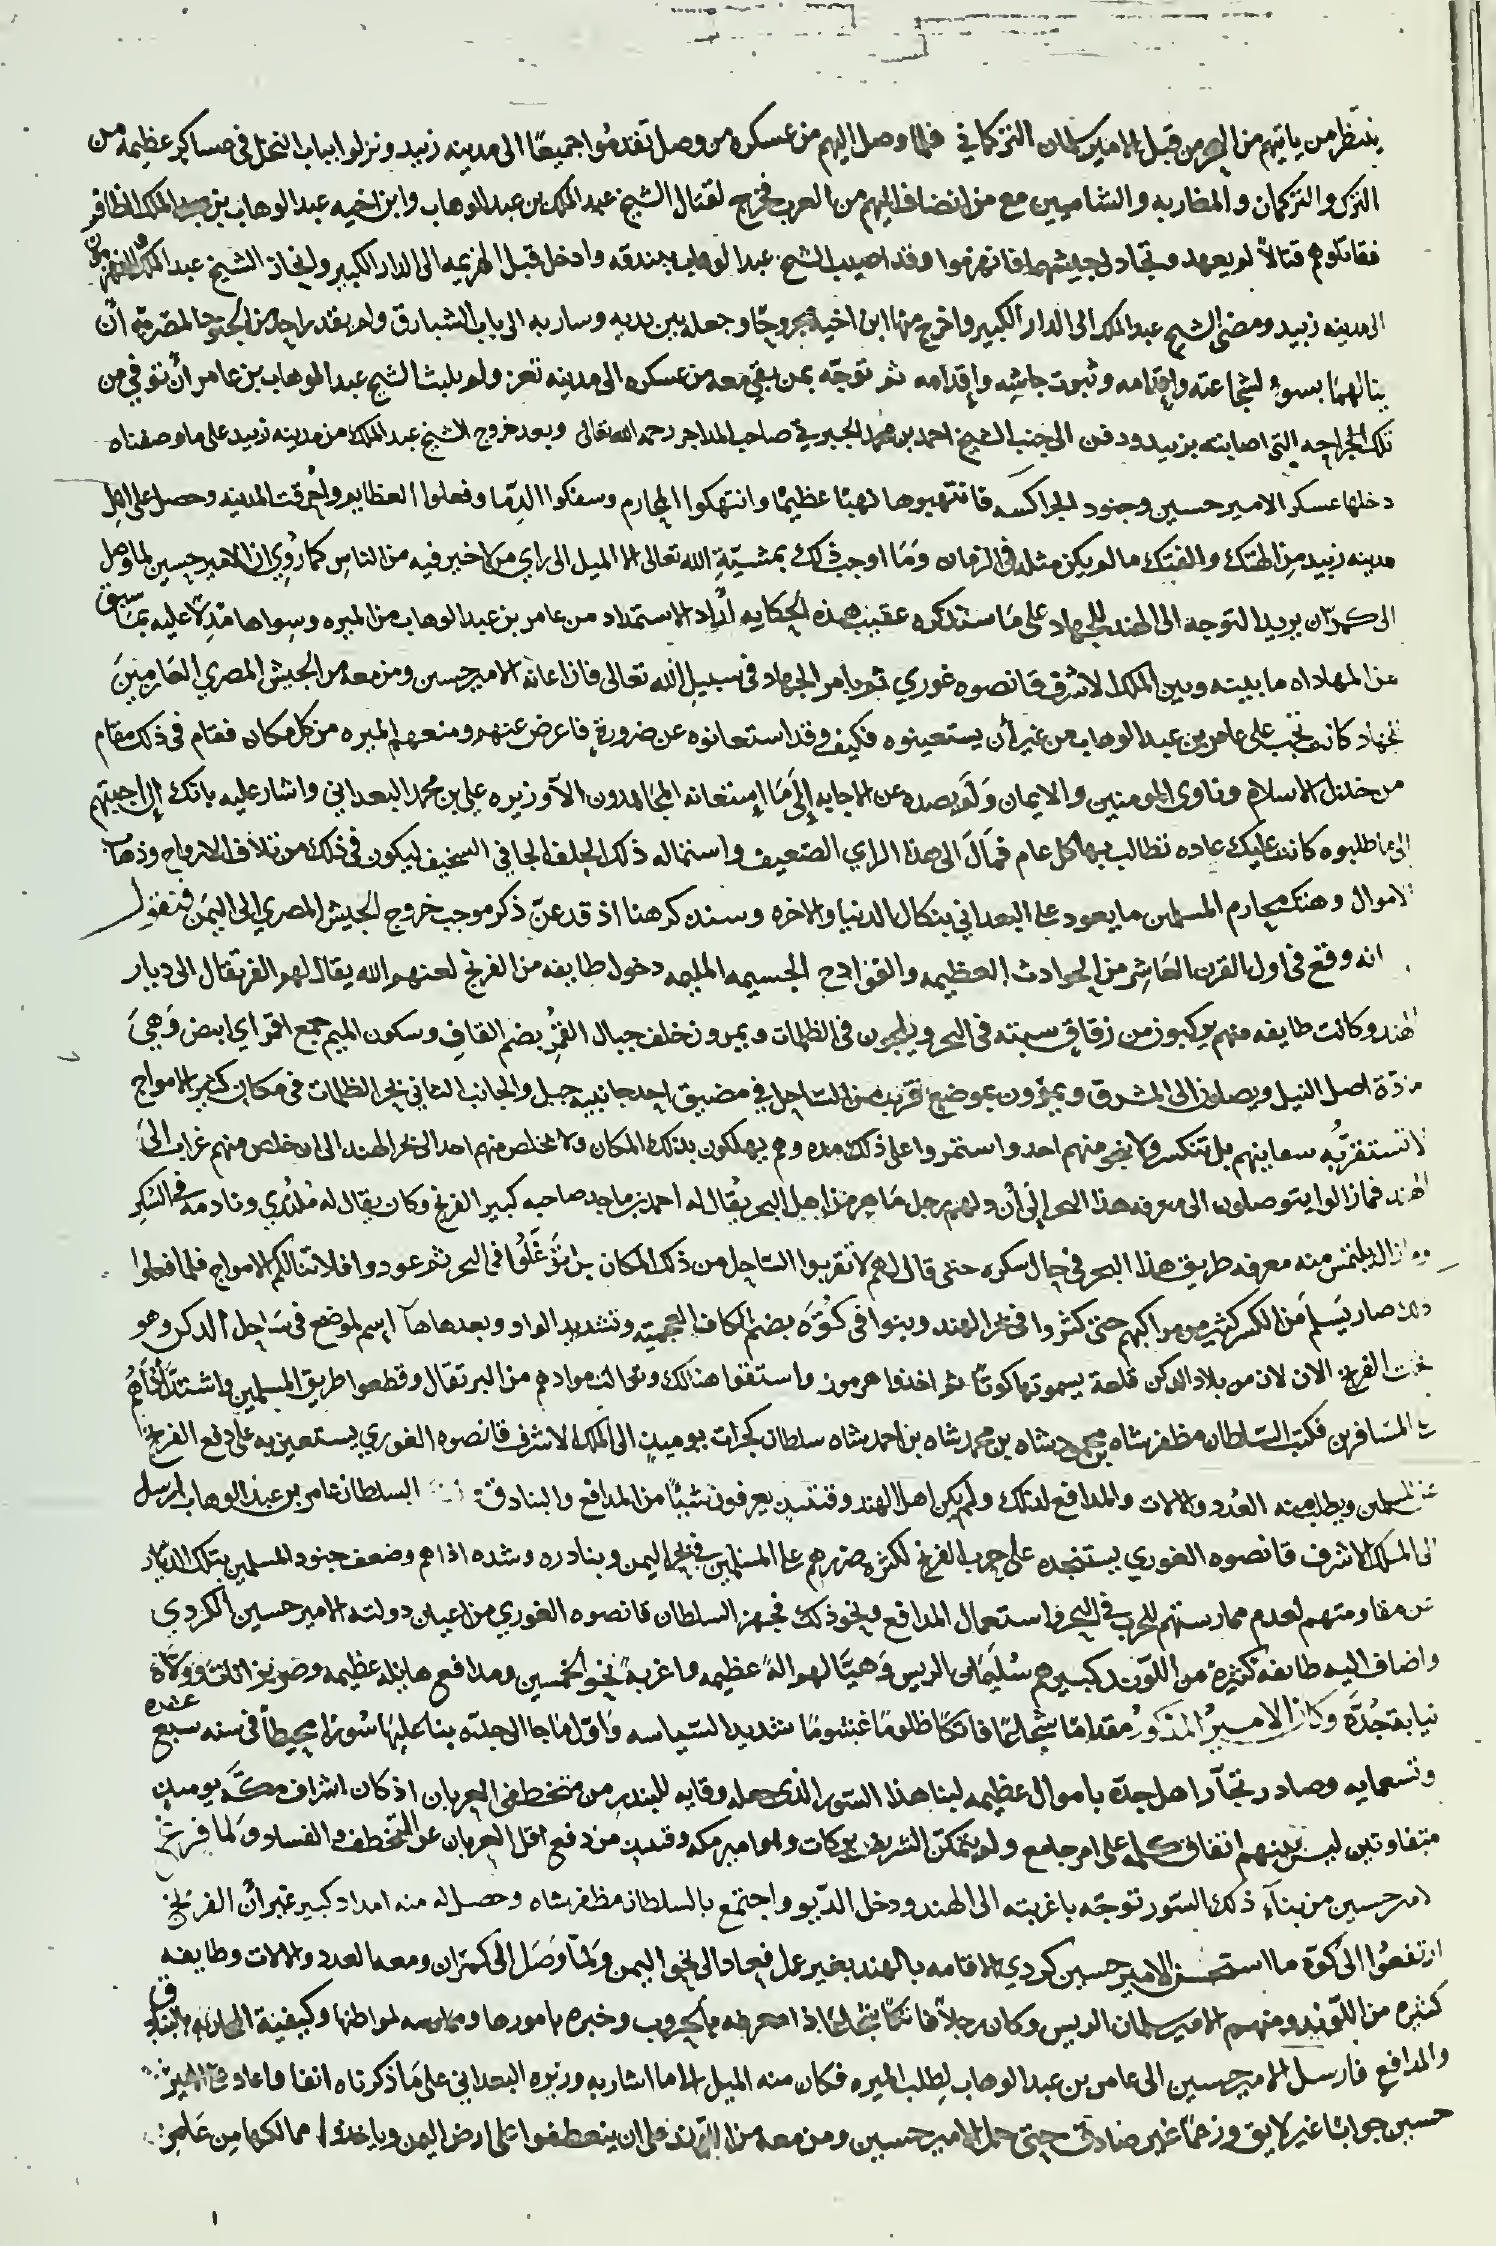 ينتظر من ياتيهم من البحر من قبل الامير سلمان التركماني فلما وصل اليهم من عسكره من وصل تقدموا جميعًا الى مدينه زبيد ونزلوا بباب النخل في عساكر عظيمه من
الترك والتركمان والمغاربه والشاميين مع من انضاف اليهم من العرب فخرج لقتال الشيخ عبد الملك بن عبد الوهاب وابن اخيه عبد الوهاب بن الملك الظافر
فقاتلوهم قتالاً لم يعهد وتجادل جيشهما فانهزموا وقد اصيب الشيخ عبد الوهاب ببندقه وادخل قبل الهزيمه الى الدار الكبير وانحاز الشيخ عبد الملك
الى مدينه زبيد ومضى الشيخ عبد الملك الى الدار الكبير واخرج منها ابن اخيه مجروحًا وجعله بين يديه وساربه الى باب الشبارق ولم يقدر احد من الجنود المصريه ان
ينالهما بسوءٍ لشجاعته واقدامه وثبوت جاشه واقدامه ثم توجّه بمن بقي معه من عسكره الى مدينه تعز ولم يلبث الشيخ عبد الوهاب بن عامر أن توفي من
تلك الجراحه التي اصابته بزبيد ودفن الى جنب الشيخ احمد بن محمد الجبرتي صاحب المداجر رحمه الله تعالى وبعد خروج الشيخ عبد الملك من مدينه زبيد على ما وصفناه
دخلها عسكر الامير حسين وجنود الجراكسه فانتهبوها نهبًا عظيمًا وانتهكوا المحارم وسفكوا الدّما وفعلوا العظايم واُحرقت المدينه وحصل على اهل
مدينه زبيد من الهتك والفتك ما لم يكن مثله في الزمان وَمَا اوجب ذلك بمشيّةِ الله تعالى الا الميل الى راي من لا خير فيه من الناس كما رُوِي ان الامير حسين لما وصل
الى كمران يريد التوجه الى الهند للجهاد على مَا سنذكره عقيب هذه الحكايه أراد الاستمداد من عامر بن عبد الوهاب من الميره وسِواها مُدِلاً عليه بمَا سبق
من المهاداه ما بينه وبين الملك الاشرف قانصوه غوري ثم بامر الجهاد في سبيل الله تعالى فان اعانه الامير حسين ومن معه من الجيش المصري العَازمينَ
للجهاد كانت تجب على عامر بن عبد الوهاب من غير أن يستعينوه فكيف وقد استعانوه عن ضرورةٍ فاعرض عنهم ومنعهم الميره من كل مكان فقام في ذلك مقام
من خذل الاسلام وناوى المومنين والايمان وَلم يصده عن الاجابه إلَى مَا استعانه المجاهدون الاّ وزيره علي بن محمد البعداني واشار عليه بانك إن اجبتهم
الى ما طلبوه كانت عليك عاده تطالب بها كل عام فمَالَ الى هذا الراي الضّعيف واستماله ذلك الجلف الجافي السخيف ليكون في ذلك من تلاف الارواح وذهاب
الاموال وهتك محارم المسلمين ما يعود على البعداني بنكال الدنيا والاخره وسنذكر هنا اذ قد عنّ ذكر موجب خروج الجيش المصري الى اليمَن فنقول
انه وقع في اول القرن العَاشر من الحوادث العظيمه والقوادح الجسيمه المليمه دخول طايفه من الفرنج لعنهم الله يقال لهم الفرتقال الى ديار
الهند وكانت طايفه منهم يركبون من زقاق سبته في البحر ويلجون في الظلمات ويمرون خلف جبال القُمْر بضم القافِ وسكون الميم جمع اقمر اي ابيض وَهيَ
مادّة اصل النيل ويصلون الى المشرق ويمرّون بموضع قريب من السّاحِل في مضيق احد جانبيه جبل والجانب الثاني بحر الظلمات في مكان كثير الامواج
لا تستقرّبه سفاينهم بل تنكسر ولا ينجو منهم احد واستمروا على ذلك مده وهم يهلكون بذلك المكان ولا يخلص منهم احد الى بحر الهند الى ان خلص منهم غراب الىَ
الهند فما زالوا يتوصلون الى معرفه هذا البحر إلَى أن دلهم رجل مَاهر من اهل البحر يُقال له احمد بن ماجد صاحبه كبير الفرنج وكان يقال له مُلنْدي ونادمه في السُّكر
يلتمس منه معرفه طريق هذا البحر في حال سكره حتى قال لهم لا تقربوا السّاحِل من ذلك المكان بل تَوَغّلُوا في البحر ثم عودوا فلا تنالكم الامواج فلما فعلوا
ذلك صار يَسلم مَن الكسر كثير من مراكبهم حتى كثروا في بحر الهند وبنوا في كُوَّه بضم الكاف العجميته وتشديد الواو وبعدها هآ إسم لموضع في سَاحِل الدكن وهو
تحت الفرنج الان لان من بلاد الدكن قلعة يسمونها كوتا ثم اخذوا هرموز واستقوا هنالك وتوالت موادهم من البرتقال وقطعوا طريق المسلمين واشتدّ أذاهم
على المسَافرين فكتب السّلطان مظفر شاه بن محمود شاه بن محمد شاه بن احمد شاه سلطان كجرات يوميذٍ الى الملك الاشرف قانصوه الغوري يستعين به على دفع الفرنج
عن المسلمين ويطلب منه العُدد والالات والمدافع لذلك ولم يكن اهل الهند وقتئذٍ يعرفون شيئًا من المدافع والبنادق السلطان عامر بن عبد الوهاب ارسل
الى الملك الاشرف قانصوه الغوري يستنجده على حرب الفرنج لكثرة ضررهم على المسلمين في بحر اليمن وبنادره وشده اذاهم وضعف جنود المسلمين بتلك الديار
عن مقاومتهم لعدم ممارستهم للحرب في البحر واستعمال المدافع ونحو ذلك فجهز السلطان قانصوه الغوري من اعيان دولته الامير حسين الكردي
واضاف اليه طايفه كثيرة من اللّوند كبيرهم سُليمَان الريس وَهيَّا لهم الةً عظيمه واغربةً نحو الخمسين ومدافع هايله عظيمه وضربزانات وَوَلاّه
نيابة جُدّه وكان الامير المذكورُ مقدامًا شجاعًا فاتكًا ظلومًا غشومًا شديد السّياسه وَاوّل مَا جا الى جدّه بنا عليهَا سُورًا محيطاً في سنه سبع عشره
وتسعمايه وصادر تجّار اهل جدّة باموال عظيمه لبنا هذا السّور الذي جعله وقايه للبندر من متخطفي العربان اذ كان اشراف مكّه يوميذٍ
متفاوتين ليس بينهم اتفاق كلمه على امر جامع ولم يتمكن الشريف بركات وهو امير مكه وقتئذٍ من دفع اقل العربان عن التخطف والفساد وَلما فرغ
الامير حسين من بناءِ ذلك السّور توجّه باغربته الى الهند ودخل الدّيو واجتمع بالسلطان مظفر شاه وحصل له منه امداد كبير غير أن الفرنج
ارتفعُوا الى كُوّه ما استحسن الامير حسين كردي الاقامه بالهند بغير عمل فعاد الى نحو اليمن وَلمّا وَصَل الى كمَران ومعه العدد والالات وطايفه
كثيره من اللّوند ومنهم الامير سلمان الريس وكان رجلاً فاتكًا شجاعًا ذا معرفه بالحروب وخبره بامورها وممارسه لمواطنها وكيفية المحاربه بالبنادق
والمدافع فارسل الامير حسين الى عامر بن عبد الوهاب لطلب الميره فكان منه الميل الى ما اشار به وزيره البعداني على مَا ذكرناه انفا واعاد على الامير
حسين جوابًا غير لايق وزعمًا غير صادق حتى حمل الامير حسين ومن معه من اللّوند على ان ينعطفوا على ارض اليمن وياخذوا ممالكها مِن عَامِر